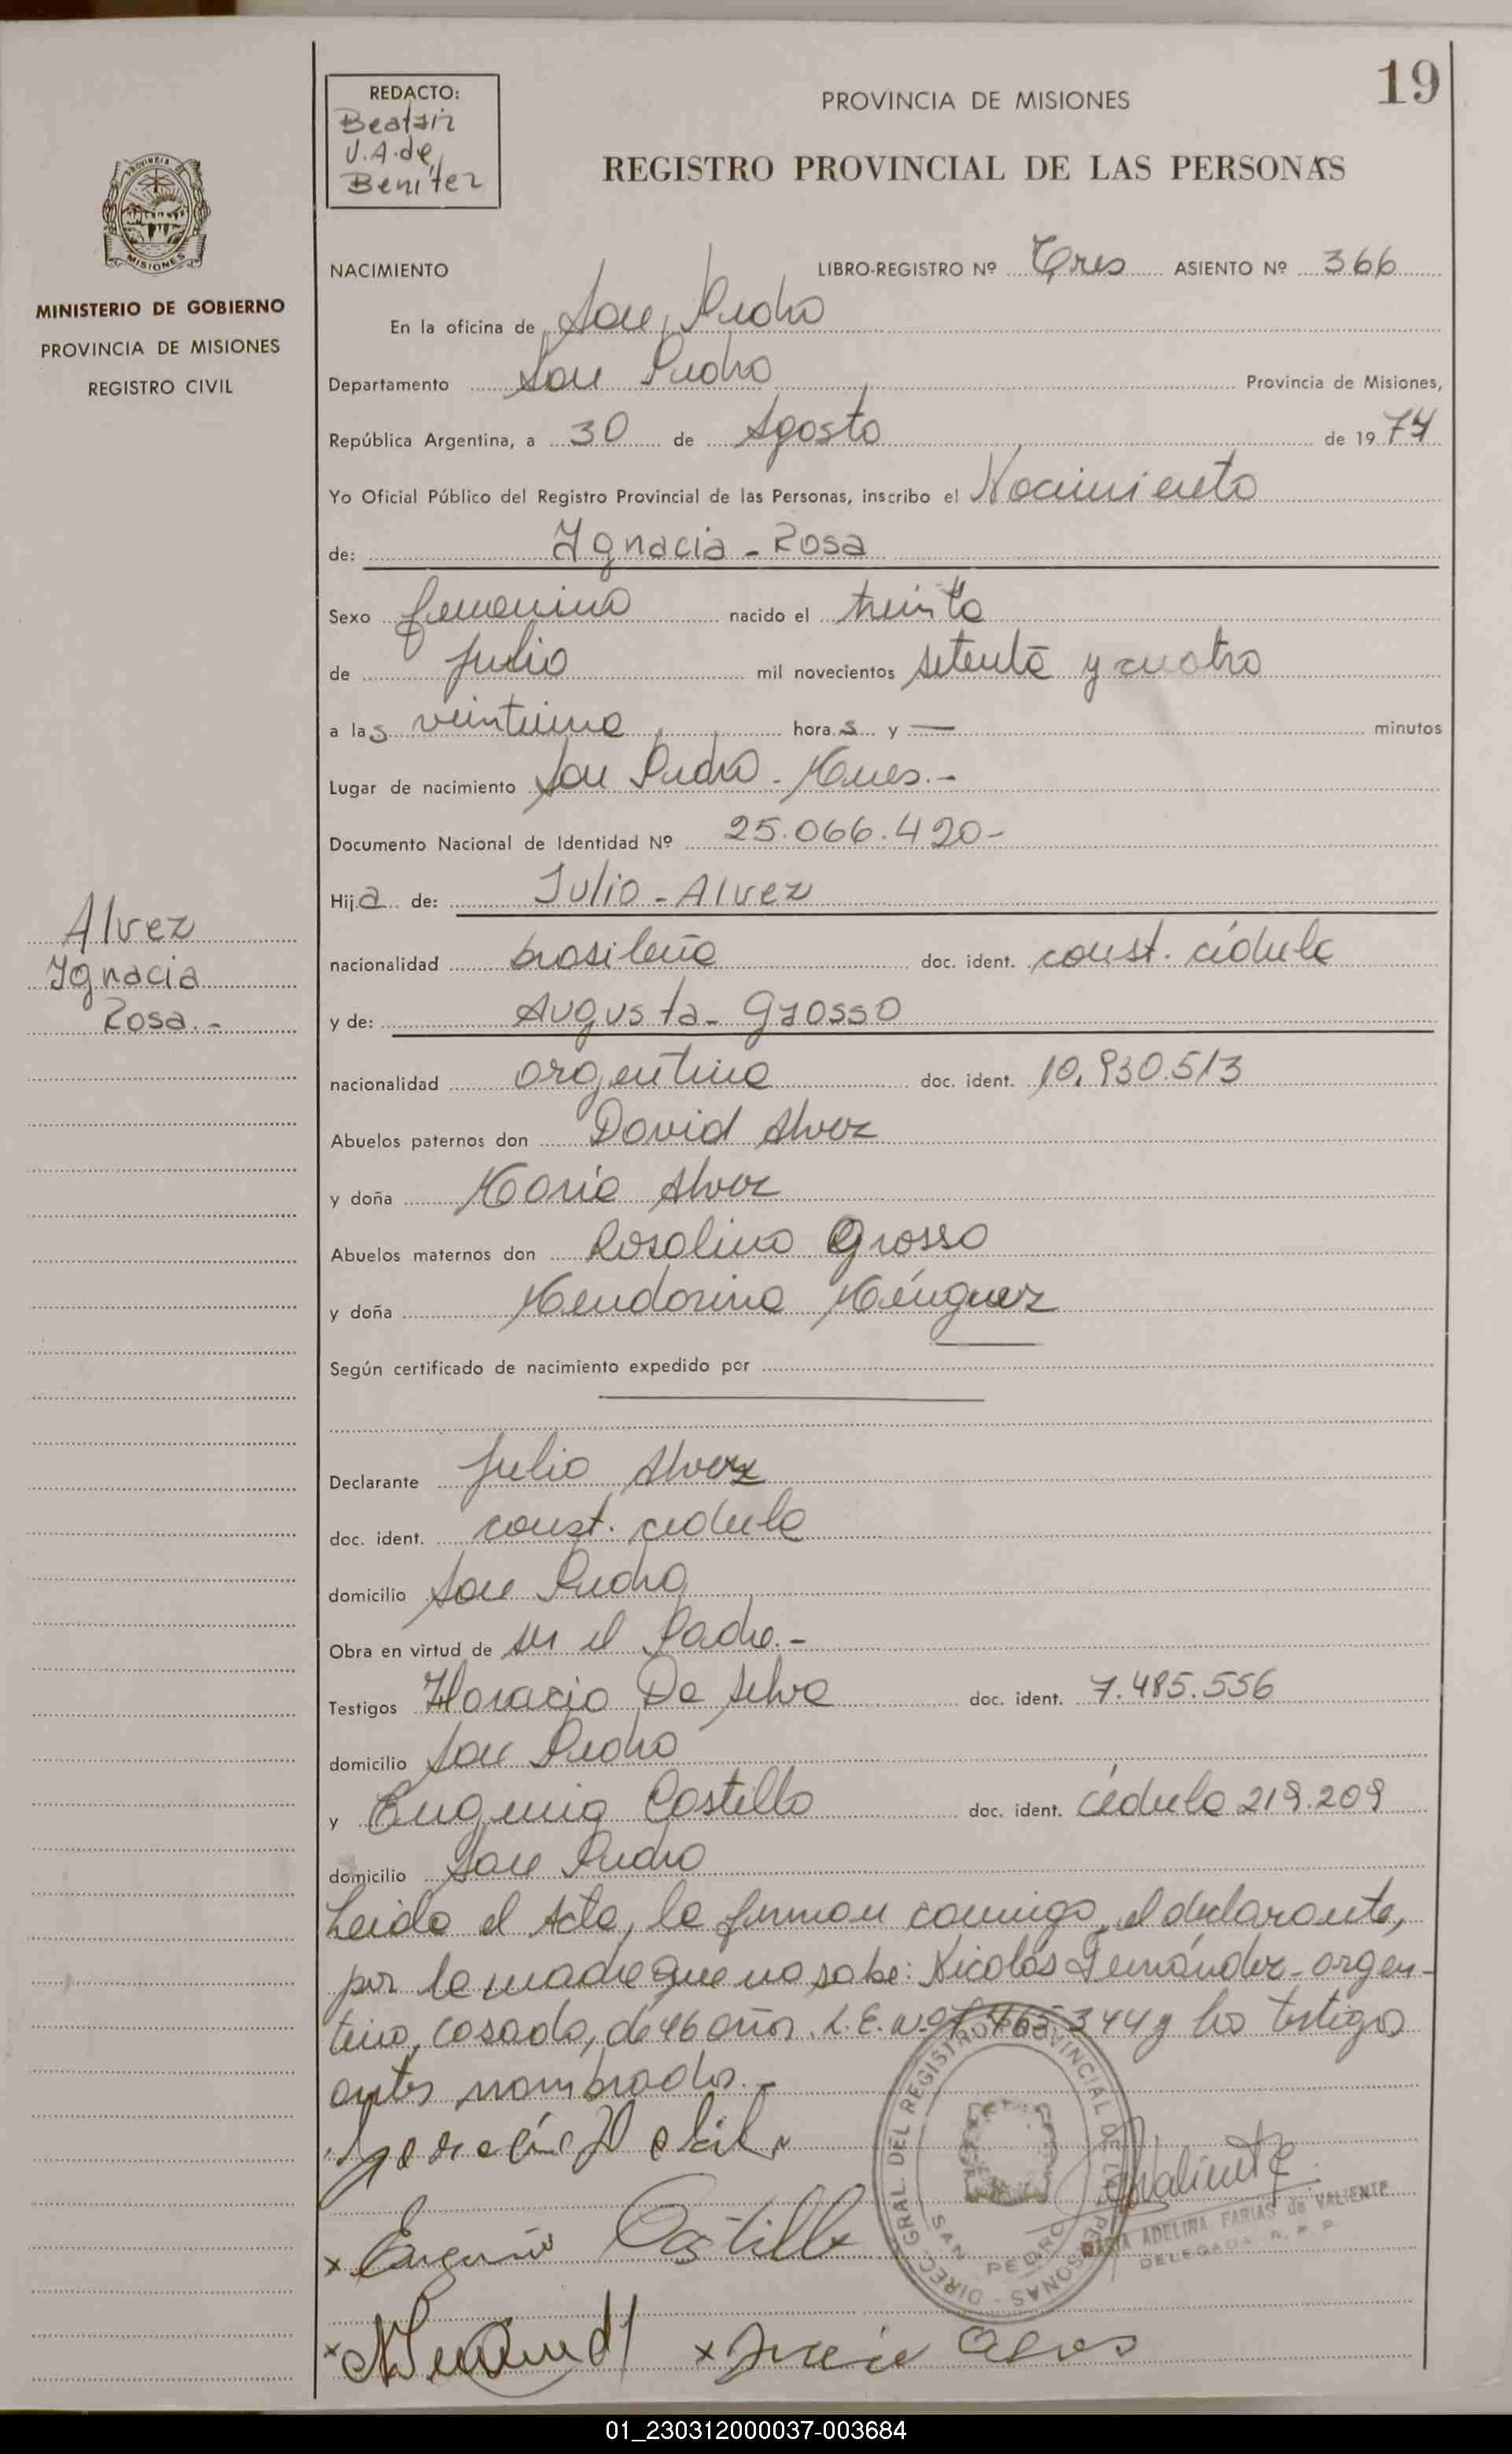 19
REDACTO:
Beatriz
V.A. de
Benítez
PROVINCIA DE MISIONES
REGISTRO PROVINCIAL DE LAS PERSONAS
PROVINCIA
MISIONES
MINISTERIO DE GOBIERNO
PROVINCIA DE MISIONES
REGISTRO CIVIL
NACIMIENTO LIBRO-REGISTRO Nº Tres ASIENTO Nº 366
En la oficina de San Pedro
Departamento San Pedro Provincia de Misiones,
República Argentina, a 30 de Agosto de 1974
Yo Oficial Público del Registro Provincial de las Personas, inscribo el Nacimiento
de: Ygnacia - Rosa
Sexo femenino nacido el treinta
de julio mil novecientos setenta y cuatro
a las veintiuna horas y — minutos
Lugar de nacimiento San Pedro - Mnes.-
Documento Nacional de Identidad Nº 25.066.420-
Hija de: Julio - Alvez
nacionalidad brasileña doc. ident. const. cédula
y de: Augusta - Grosso
nacionalidad argentina doc. ident. 10.930.513
Alvez
Ygnacia
Rosa.-
Abuelos paternos don David Alvez
y doña María Alvez
Abuelos maternos don Rosalino Grosso
y doña Mendorina Ménguez
Según certificado de nacimiento expedido por
Declarante Julio Alvez
doc. ident. const. cedula
domicilio San Pedro
Obra en virtud de ser el Padre.-
Testigos Horacio Da Silva doc. ident. 7.485.556
domicilio San Pedro
y Eugenio Castillo doc. ident. cédula 219.209
domicilio San Pedro
Leida el Acta, la firman conmigo, el declarante,
por la madre que no sabe: Nicolás Fernández - argen-
tino, casado, de 46 años. L.E. Nº 7.465.344 y los testigos
antes nombrados.-
x Eugenio Castillo
Valiente
DIREC. GRAL. DEL REGISTRO PROVINCIAL DE LAS PERSONAS -
SAN PEDRO
MARIA ADELINA FARIAS de VALIENTE
DELEGADA R. P. P.
01_230312000037-003684